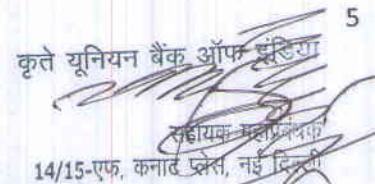 5
कृते यूनियन बैंक ऑफ इंडिया
सहायक महाप्रबंधक
14/15-एफ, कनाट प्लेस, नई दिल्ली